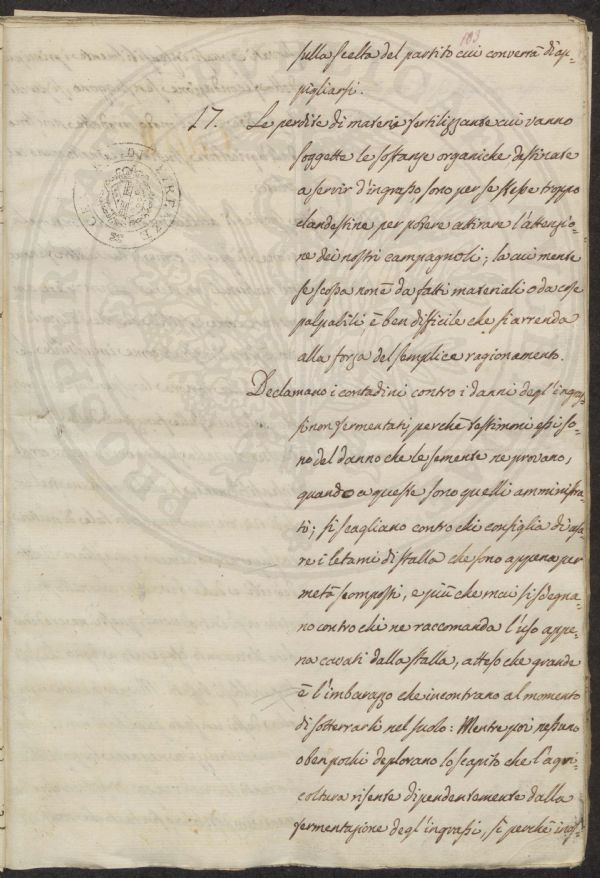 103
sulla scelta del partito cui converrà d'ap-
pigliarsi.
17. Le perdite di materia fertilizzante cui vanno
soggette le sostanze organiche destinate
a servir d'ingrasso, sono per se stesse troppo
clandestine per potere attirare l'attenzio-
ne dei nostri campagnoli; la cui mente
se scossa non è da fatti materiali o da cose
palpabili è ben difficile che si arrenda
alla forza del semplice ragionamento.
Declamano i contadini contro i danni degl'ingras-
si non fermentati, perchè testimmi essi so-
no del danno che le semente ne provano,
quando a queste sono quelli amministra-
ti; si scagliano contro chi consiglia di usa-
re i letami di stalla che sono appena per
metà scomposti, e più che mai si sdegna-
no contro chi ne raccomanda l'uso appe-
na cavati dalla stalla, atteso che grande
è l'imbarazzo che incontrano al momento
di sotterrarli nel suolo: Mentre poi nessuno
o ben pochi deplorano lo scapito che l'agri-
coltura risente dipendentemente dalla
fermentazione degl'ingrassi, sì perchè ines-